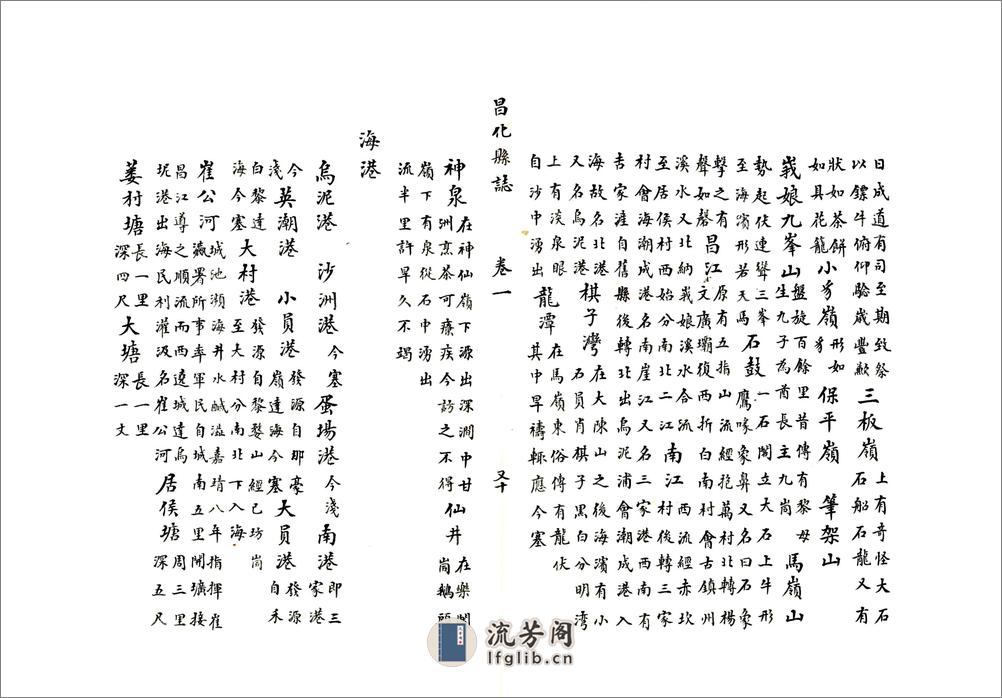 日成道有司至期致祭以鏢牛俯仰驗歲豐歉 三板嶺 上有奇怪大石石船石龍又有
狀如茶餅如具花龍 小豸嶺 形如豸 保平嶺 筆架山
峩娘九峯山 盤旋百餘里昔傳有黎母生九子為酋長主九崗 馬嶺山
勢起伏連聳三峯至海濱形若天馬 石鼓 一石闊立大石上牛形鷹喙象鼻又名曰石象
擊之有聲如磬 昌江 原有五指山流經萬村北轉楊文廣壩復西折白南村會古鎮州
溪水又北納峩娘溪水合流至居侯村西始分南北二江 南江 西流經赤坎村後轉三家
村會海潮成港名南崖江又名三家港西南有舌家洼自舊縣後轉北出烏泥浦會潮成港入
海故名北港又名烏泥港 棋子灣 在大陳山之後海濱有小員肖棋子黑白分明灣
上有淡泉眼自沙中湧出 龍潭 在馬嶺東俗傳有龍伏其中旱禱輒應今塞
昌化縣誌 卷一 又十
神泉 在神仙嶺下源出深澗中甘洲烹茶可療疾今訪之不得 仙井 在樂澗崗鵝頭
嶺下有泉從石中湧出流半里許旱久不竭
海港
烏泥港 沙洲港 今塞 蛋場港 今淺 南港 即三家港
今淺 英潮港 小員港 發源自那豪嶺達海今塞 大員港 發源自禾
白黎達海今塞 大村港 發源自黎婺山經己坊崗至大村分南北下入海
崔公河 城池瀕海井水鹹溢嘉靖八年指揮崔瀛署所事率軍民自城南五里開壙接
昌江導之順流而西遶城達烏坭港出海民利灌汲名崔公河 居侯塘 周三里深五尺
姜村塘 長一里深四尺 大塘 長一里深一丈
流芳阁
lfglib.cn